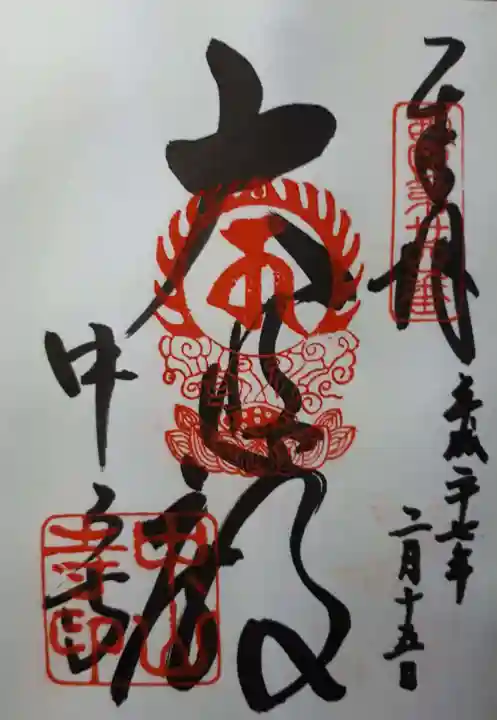 奉拝
平成二十七年
二月十五日
大悲殿
中山寺
中山
寺印